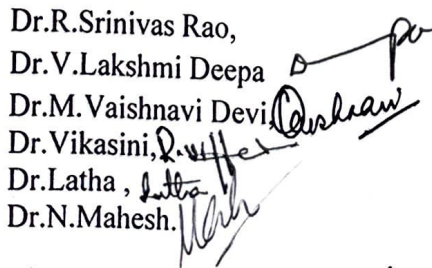 Dr.R.Srinivas Rao,
Dr.V.Lakshmi Deepa
Dr.M.Vaishnavi Devi,
Dr.Vikasini,
Dr.Latha , Latha
Dr.N.Mahesh.